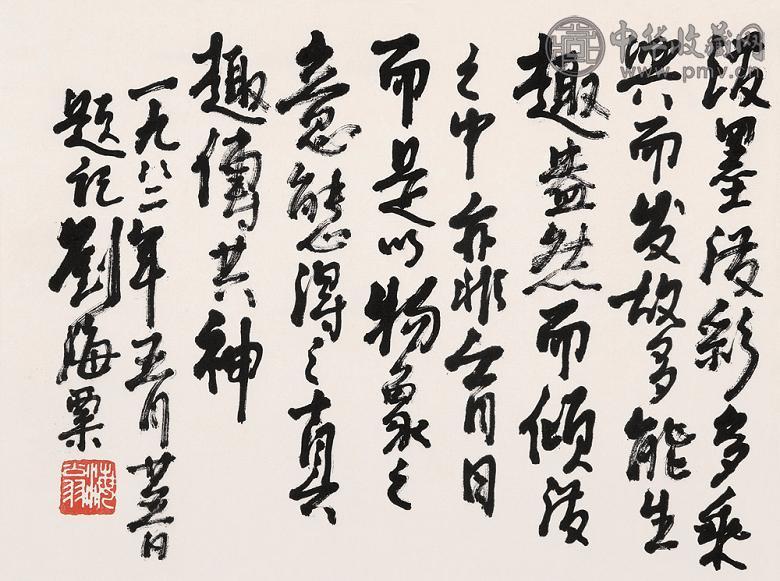 泼墨泼彩多乘
兴而发故多能生
趣盎然而倾泼
之中亦非盲目
而是以物象之
意态得之真
趣传其神
一九八二年五月廿五日
题记刘海粟
海翁
中华收藏网
www.pmv.cn